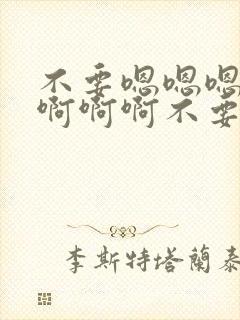 不要嗯嗯嗯
啊啊啊不要
李斯特塔蘭泰